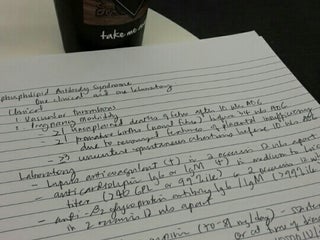 take me
phospholipid Antibody Syndrome
One clinical and one laboratory
Clinical
1. Vascular thrombosis
2. Pregnancy morbidity
- ≥1 unexplained deaths of fetus after 10 wks AOG
- ≥1 premature births (normal fetus) before 34 wks AOG
due to recognized features of placental insufficiency
- ≥3 spontaneous abortions before 10 wks AOG
Laboratory
- Lupus anticoagulant (+) in 2 occasions 12 wks apart
- anti cardiolipin IgG or IgM (+) in medium to
titer (>40 GPL or 99%ile) in 2 occasions 12
wks apart
- Anti-β2 glycoprotein antibody IgG/IgM (>99%ile
in 2 occasions 12 wks apart
mg/day)